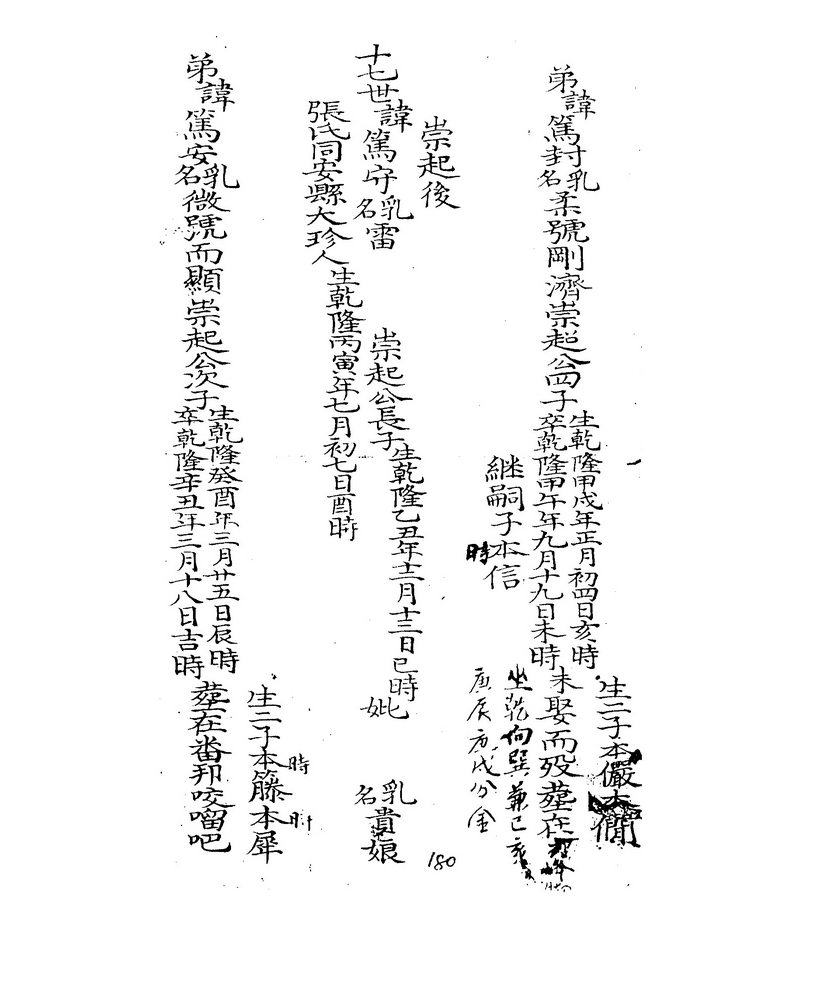 生二子本儼本僩
弟諱篤封乳名柔號剛濟崇起公四子
生乾隆甲戌年正月初四日亥時
卒乾隆甲午年九月十九日未時
未娶而歿葬在
坐乾向巽兼已亥
庚辰庚戌分金
継嗣子本信
時
崇起後
十七世諱篤守乳名雷
崇起公長子
生乾隆乙丑年十二月十三日巳時
妣
乳名貴娘
張氏同安縣大珍人
生乾隆丙寅年七月初七日酉時
生二子本籐本犀
時
時
弟諱篤安乳名微號而顯崇起公次子
生乾隆癸酉年三月廿五日辰時
卒乾隆辛丑年三月十八日吉時
葬在畨邦咬㗰吧
180